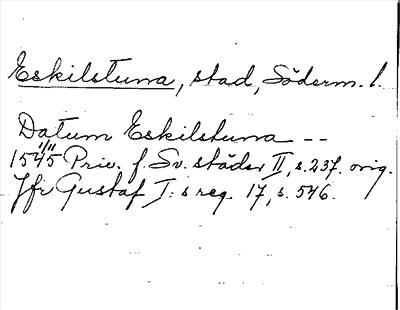 Eskilstuna, stad, Söderm. l.
Datum Eskilstuna --
1545 1/11 Priv. f. Sv. städer II, s. 237. orig.
Jfr Gustaf I:s reg. 17, s. 546.